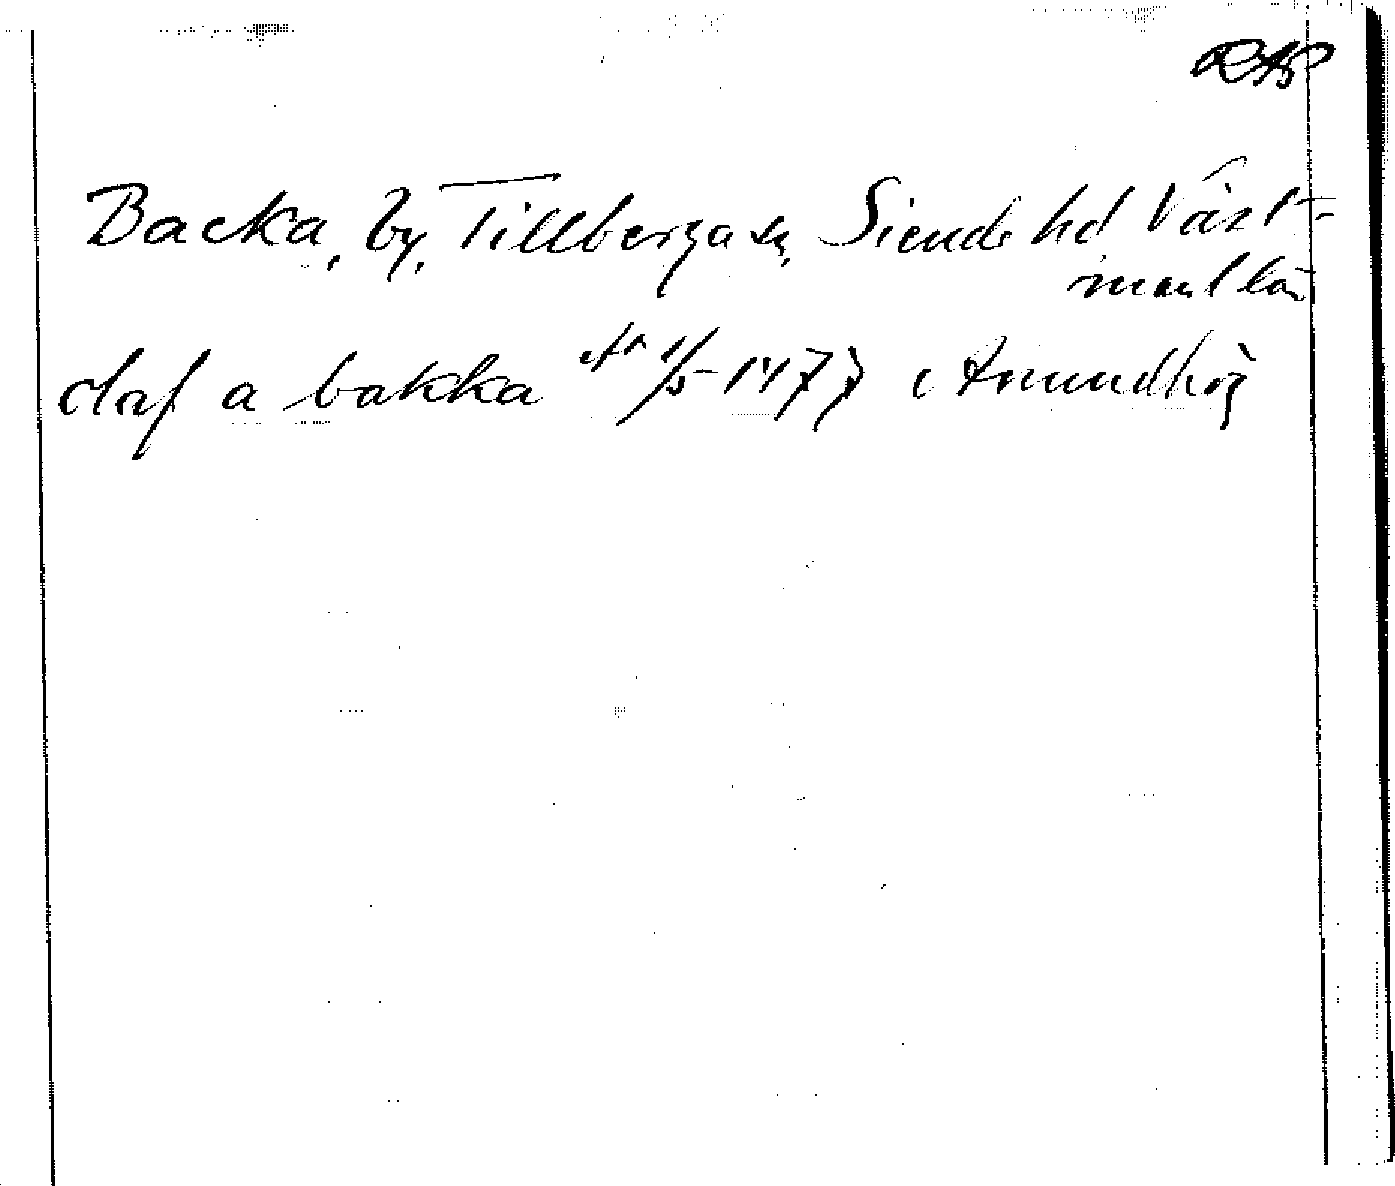 Backa, by, Tillberga sn, Siende hd Väst-
manl län
olaf a bakka 1/5 1477 i Amundhög